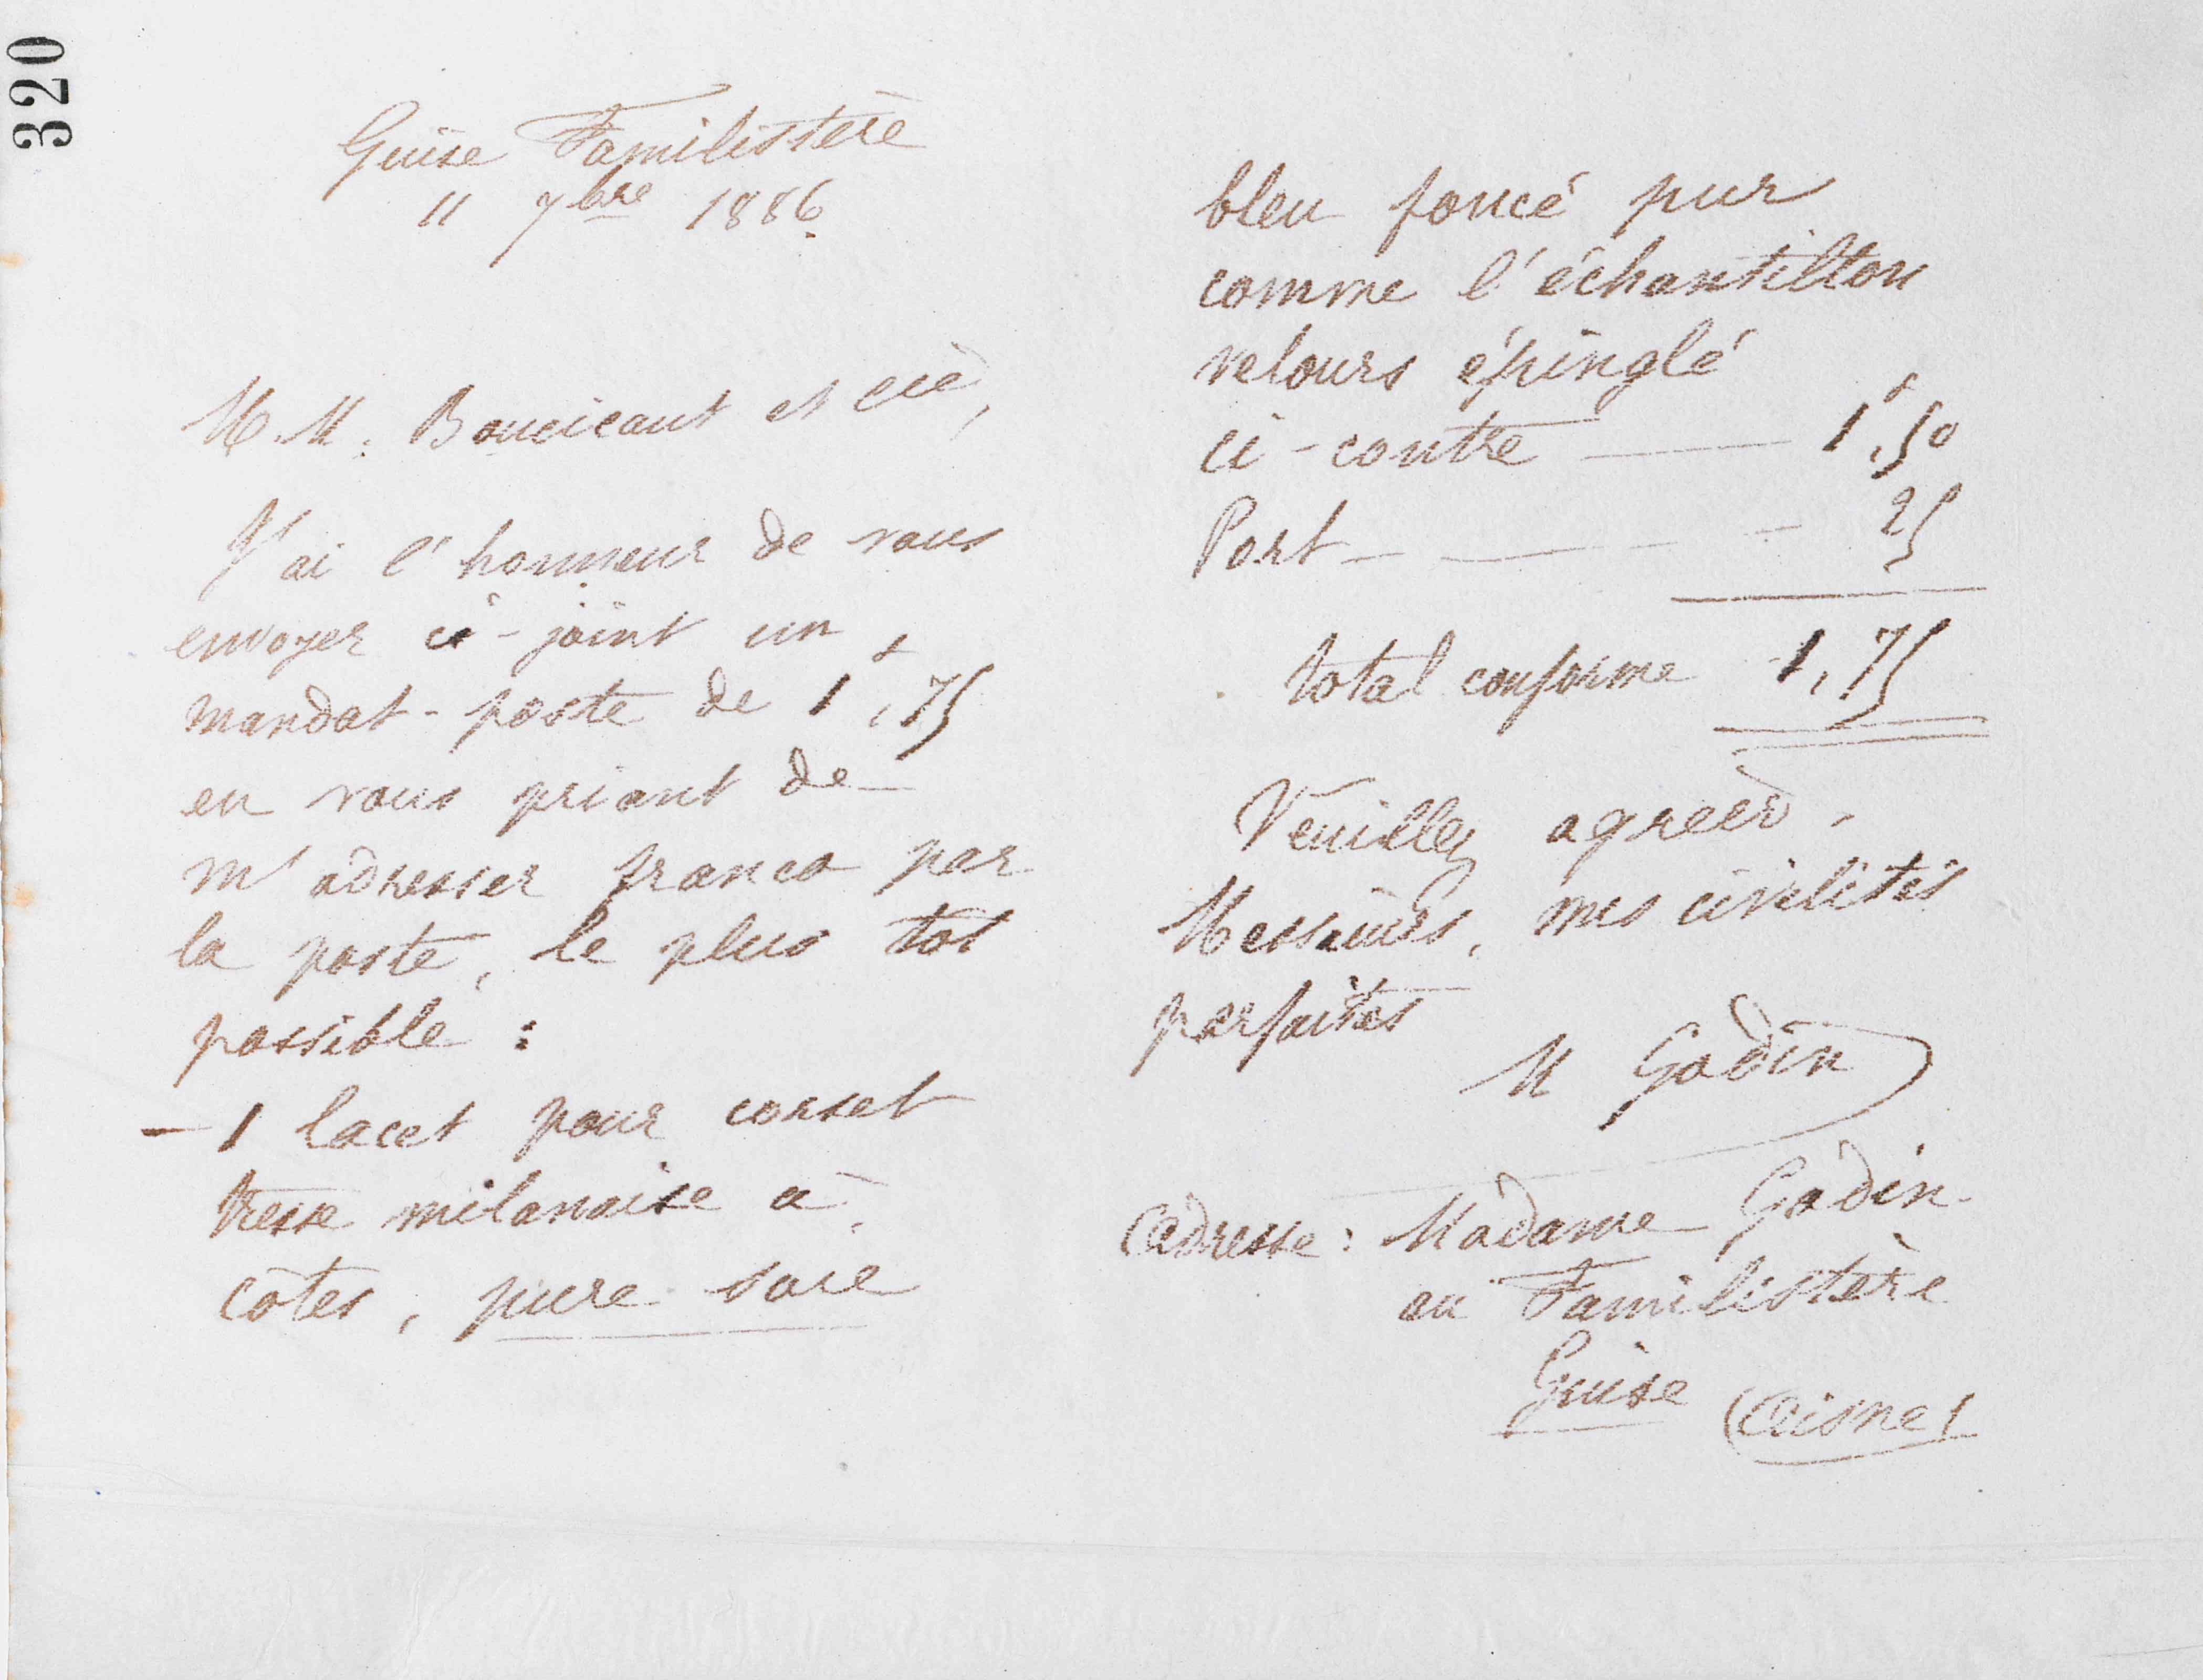 320
Guise Familistère
11 7bre 1886
M.M. Boucicaut et cie,
J'ai l'honneur de vous
envoyer ci-joint un
mandat-poste de 1f,75
en vous priant de
m'adresser franco par
la poste, le plus tôt
possible :
— 1 lacet pour corset
tresse milanaise à
côtes, pure soie
bleu foncé pur
comme l'échantillon
velours épinglé
ci-contre — 1f,50
Port — — — 25
total conforme 1,75
Veuillez agréer,
Messieurs, mes civilités
parfaites
M Godin
Adresse : Madame Godin
au Familistère
Guise (Aisne)